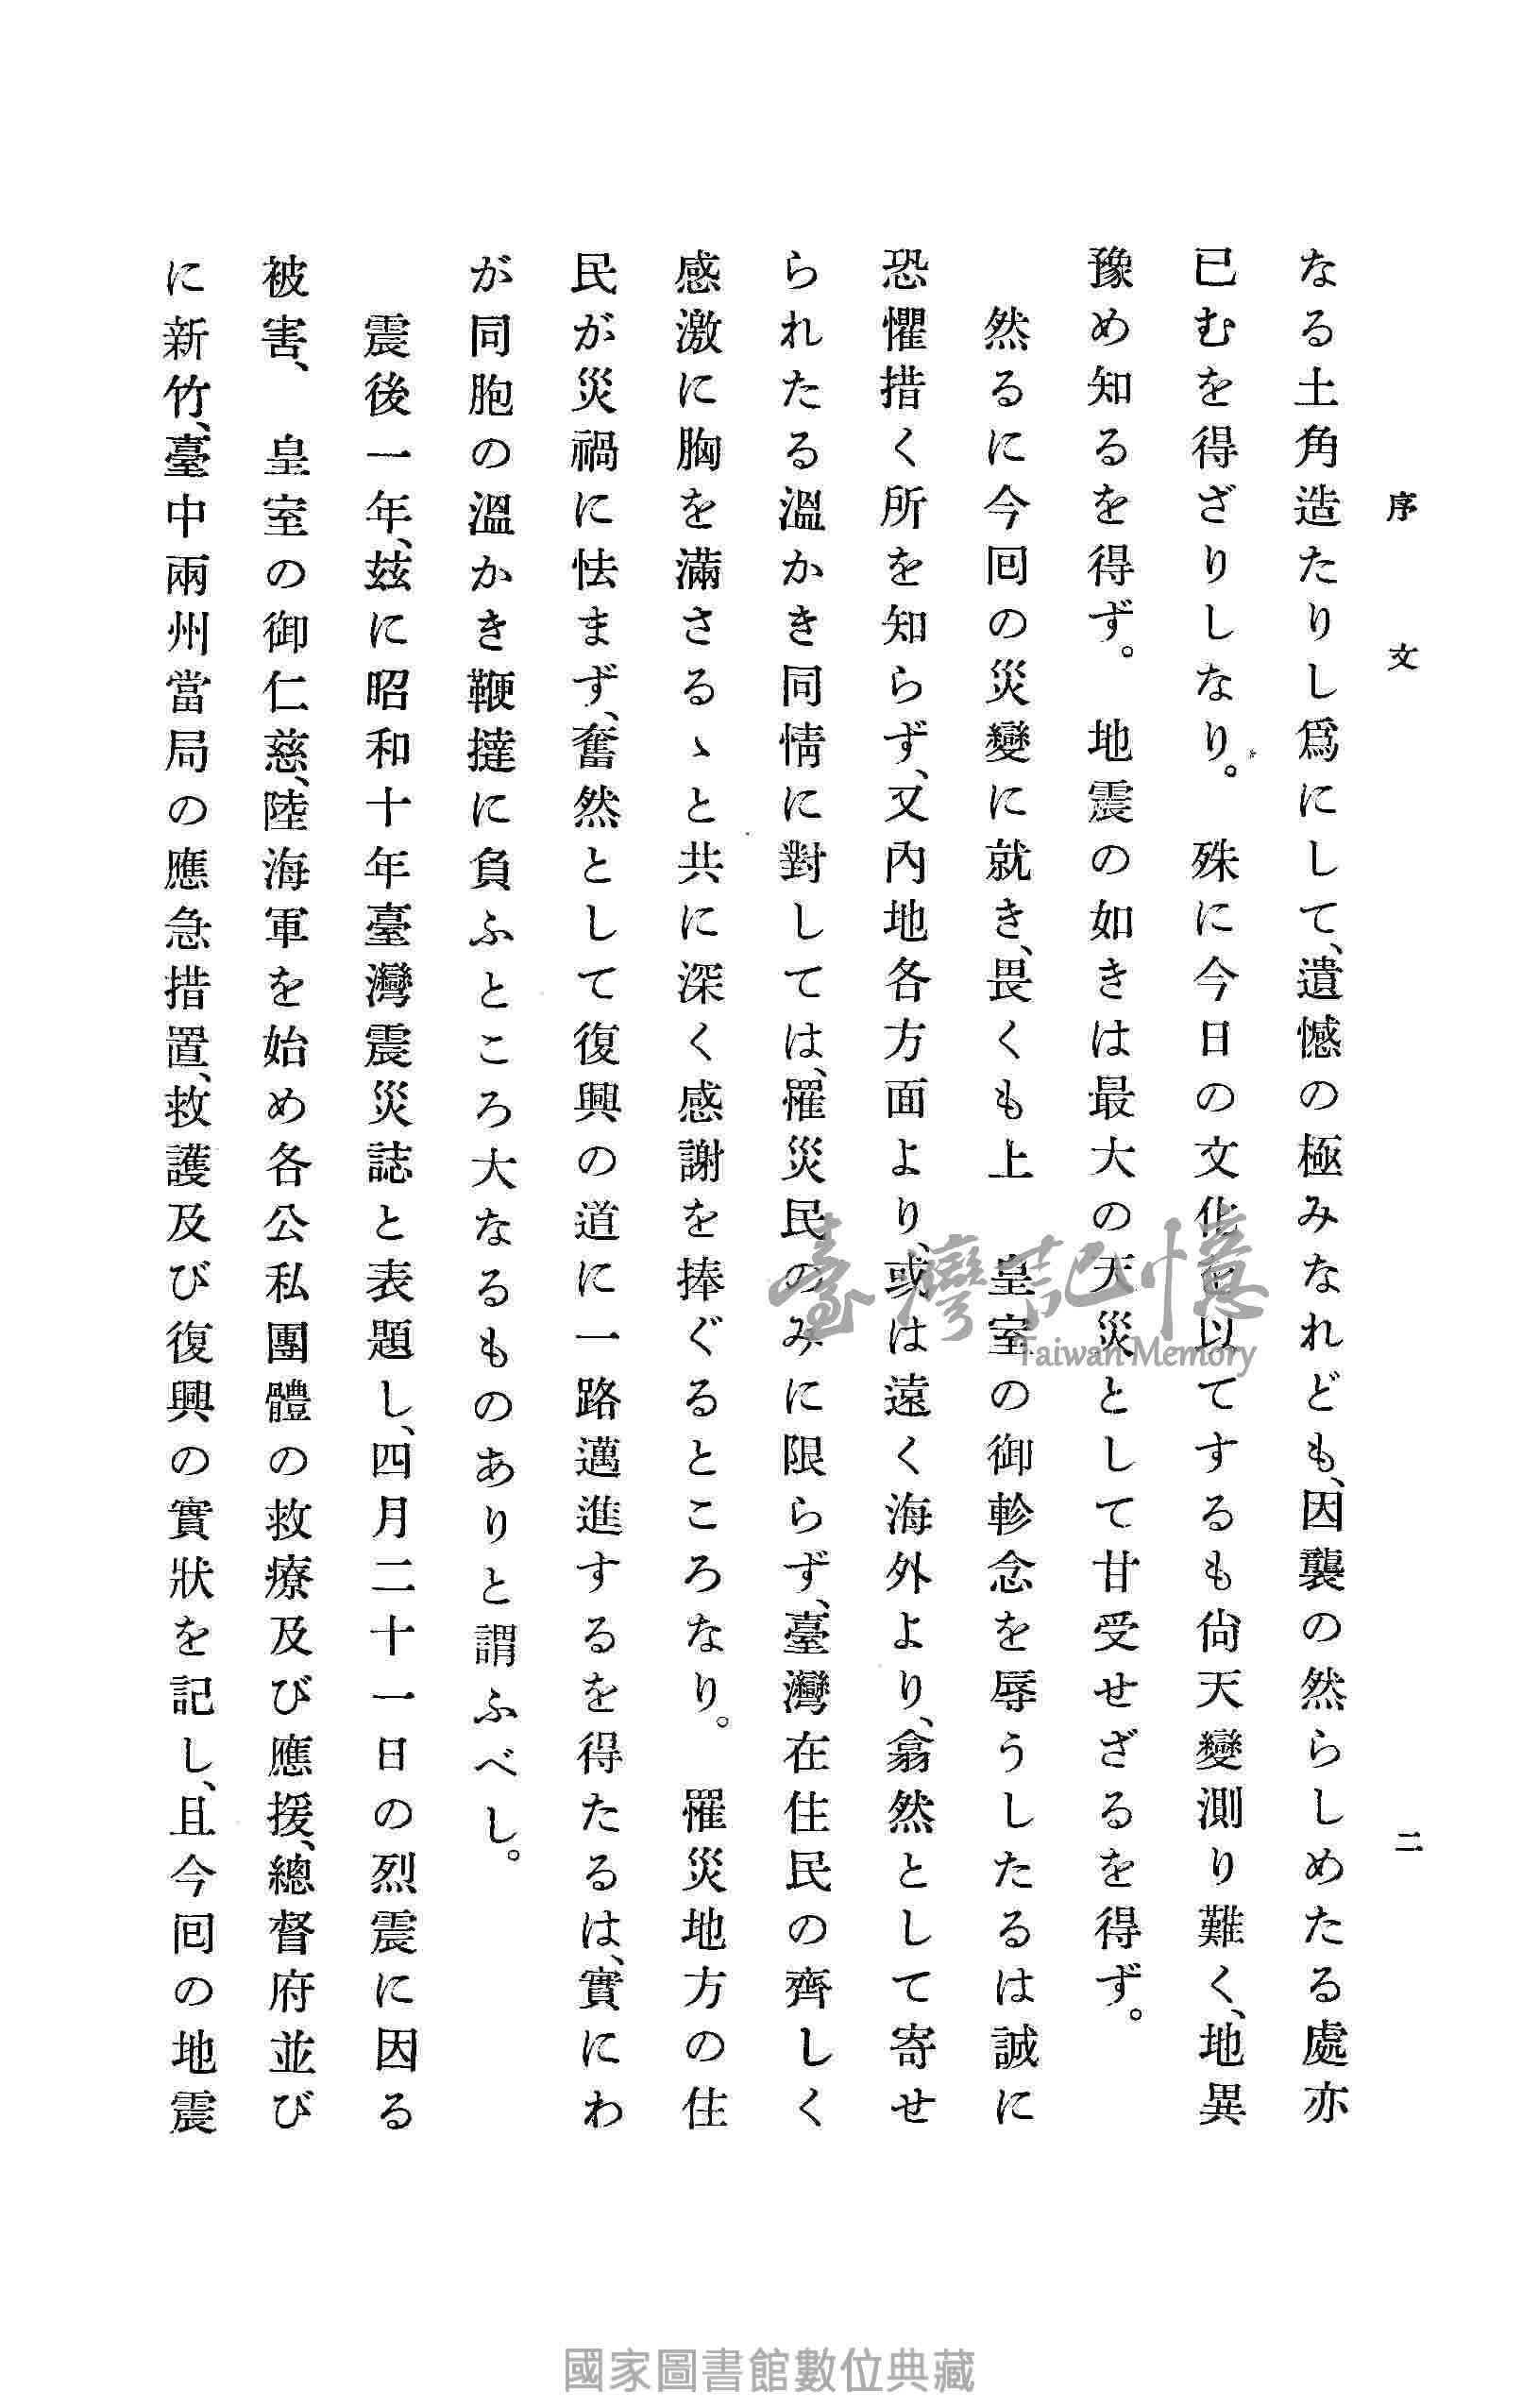 序文　二
なる土角造たりし爲にして、遺憾の極みなれども、因襲の然らしめたる處亦
已むを得ざりしなり。　殊に今日の文化を以てするも尙天變測り難く、地異
豫め知るを得ず。　地震の如きは最大の天災として甘受せざるを得ず。
然るに今回の災變に就き、畏くも上　皇室の御軫念を辱うしたるは誠に
恐懼措く所を知らず、又內地各方面より、或は遠く海外より、翕然として寄せ
られたる溫かき同情に對しては、罹災民のみに限らず、臺灣在住民の齊しく
感激に胸を滿さるゝと共に深く感謝を捧ぐるところなり。　罹災地方の住
民が災禍に怯まず、奮然として復興の道に一路邁進するを得たるは、實にわ
が同胞の溫かき鞭撻に負ふところ大なるものありと謂ふべし。
震後一年、玆に昭和十年臺灣震災誌と表題し、四月二十一日の烈震に因る
被害、　皇室の御仁慈、陸海軍を始め各公私團體の救療及び應援、總督府並び
に新竹、臺中兩州當局の應急措置、救護及び復興の實狀を記し、且今回の地震
臺灣記憶
Taiwan Memory
國家圖書館數位典藏